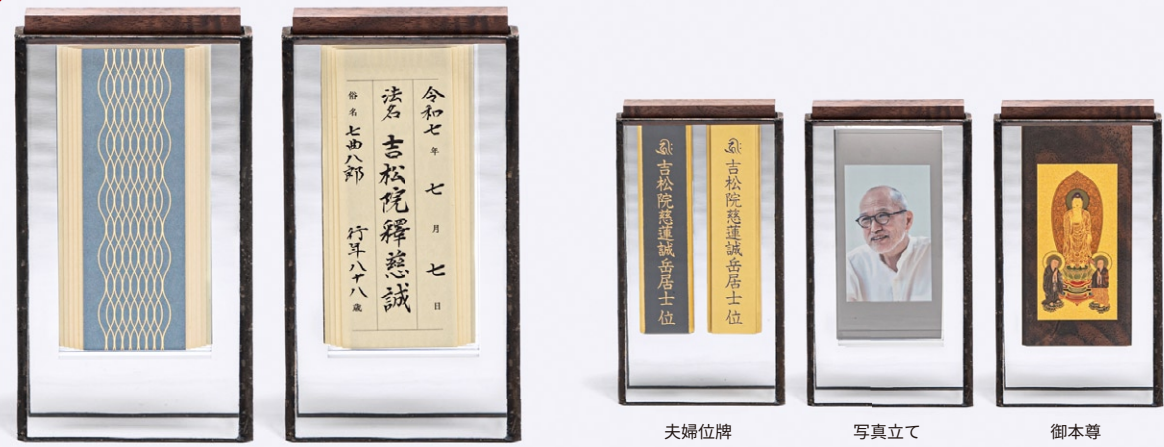 令和七年 七月 七日
法名 吉松院釋慈誠
俗名 七曲八郎 行年八十八歳
吉松院慈蓮誠岳居士位
吉松院慈蓮誠岳居士位
夫婦位牌
写真立て
御本尊